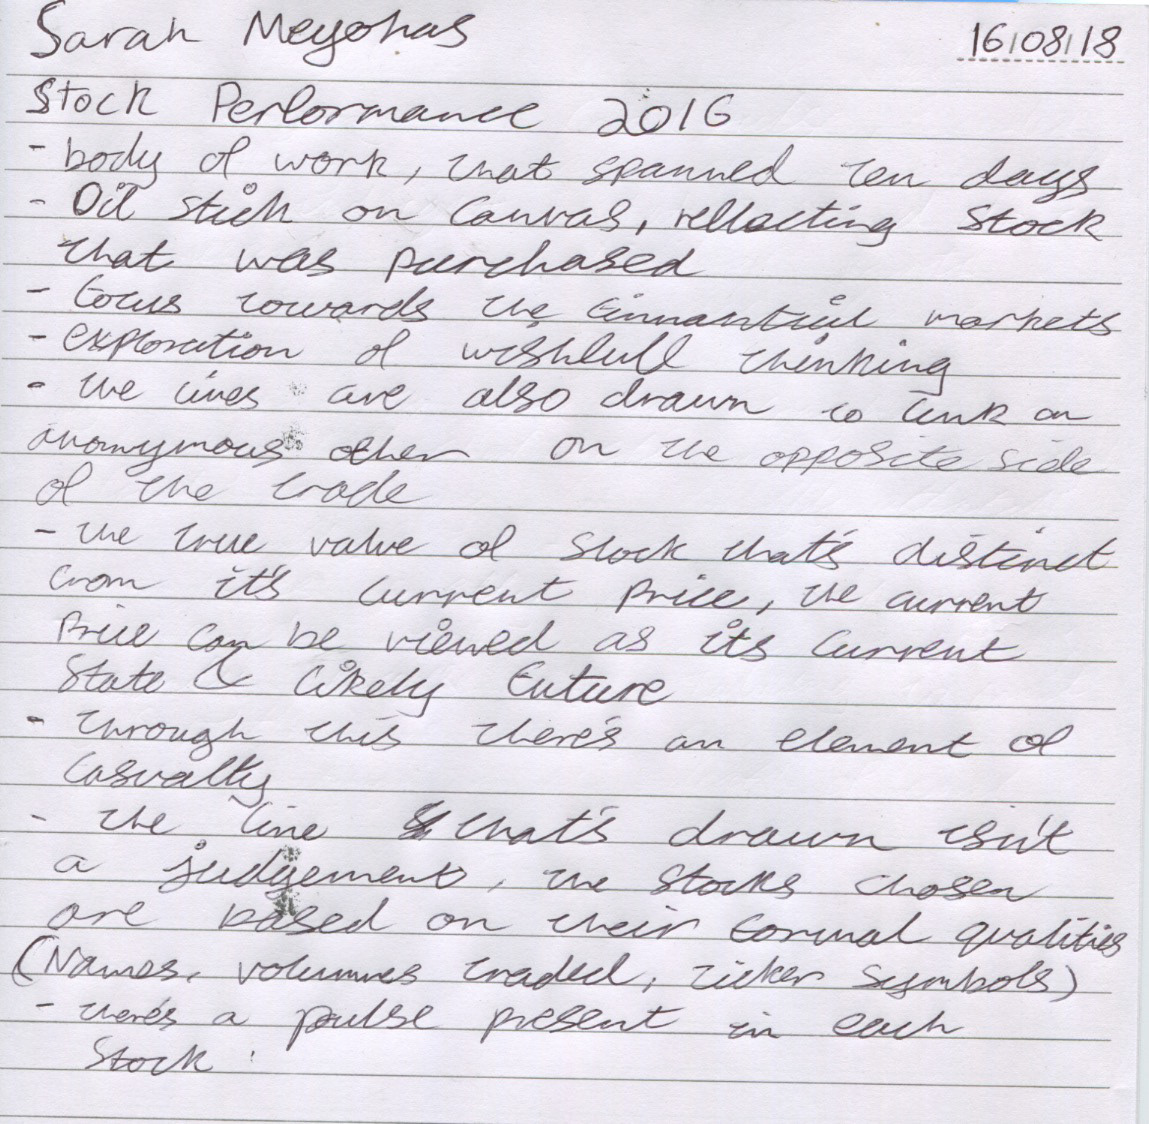 Sarah Meyohas
16/08/18
Stock Performance 2016
- body of work, that spanned ten days
- Oil stick on Canvas, reflecting Stock
that was purchased
- focus towards the finnantial markets
- exploration of wishfull thinking
- the lines are also drawn to link an
anonymous other on the opposite side
of the trade
- the true value of stock that's distinct
from it's current price, the current
Price can be viewed as its current
State & likely future
- through this there's an element of
Casualty
- the line that's drawn isn't
a judgement, the stocks chosen
are based on their formal qualities
(Names, volumnes traded, ticker symbols)
- there's a pulse present in each
Stock